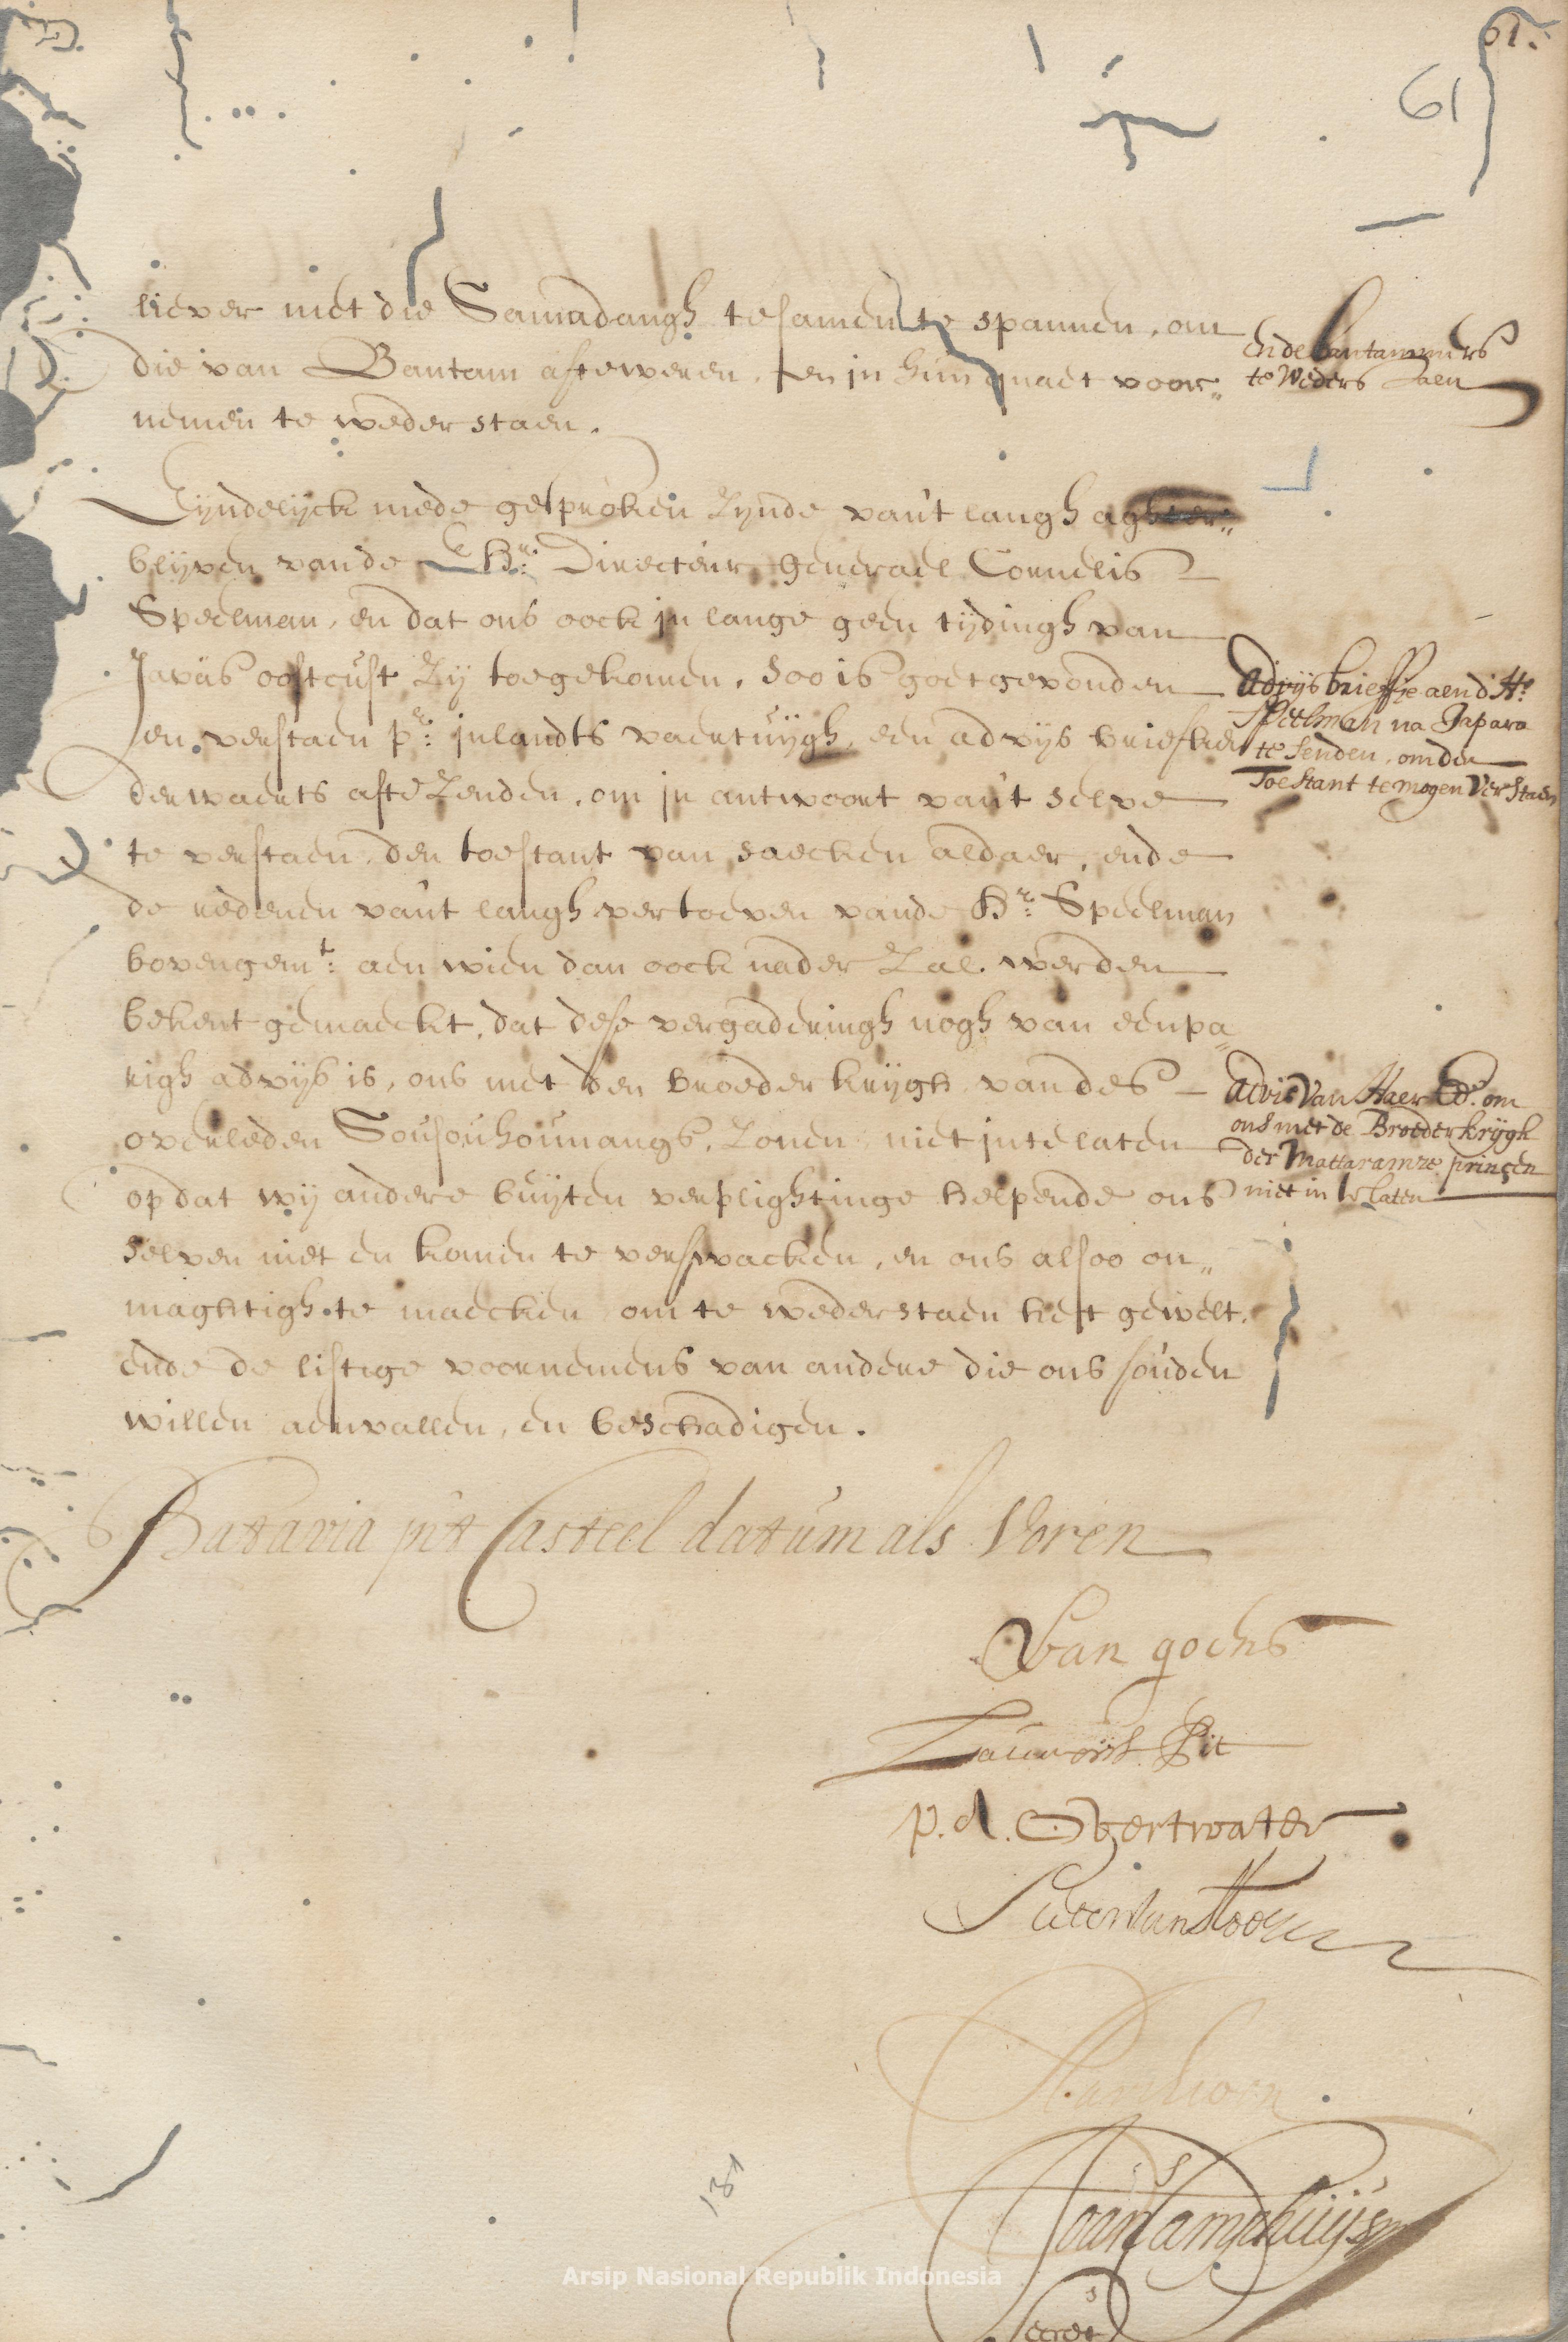 61.
61
liever met die Samadangh tesamen te spannen, om
die van Bantam afteweren, en in hun quaet voor„
nemen te wederstaen.
ende Bantammers
te Weders taen
Eyndelijck mede gesproken zynde van't langh aghter„
blijven vande E Hr: Directeur Generael Cornelis
Speelman, en dat ons oock in lange geen tijdingh van
Javas oostcust zy toegekomen, soo is goetgevonden
en verstaen pr: inlandts vaertuijgh, een advijs briefken
derwaerts aftezenden, om in antwoort van't selve
te verstaen, den toestant van saecken aldaer, ende
de redenen van't langh vertoeven vande Hr: Speelman
bovengemt: aen wien dan oock nader zal werden
bekent gemaeckt, dat dese vergaderingh nogh van eenpa„
righ advijs is, ons met den broeder krijgh van des
overleden Sousouhounangs, zonen niet inte laten
op dat wij andere buijten verplightinge helpende ons
selven niet en komen te verswacken, en ons alsoo on„
maghtigh te maecken om te wederstaen het gewelt,
ende de listige voornemens van andere die ons souden
willen aenvallen, en beschadigen.
Advijs briefje aen d' Hr.
Speelman na Japara
te senden, om den
Toestant te mogen Verstaen
Advis Van Haer Ed. om
ons met de Broeder krijgh
der Mattaramze princen
niet in te laten
Batavia int Casteel datum als Voren
Van goens
Laurens Pit
p. A. Overtwater
Pieter van Hoorn
Joan Camphuijs
Secrets
131
Arsip Nasional Republik Indonesia